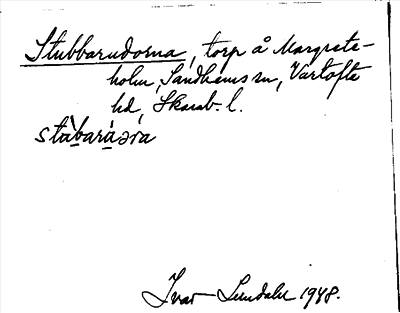 Stubbarudorna, torp å Margrete-
holm, Sandhems sn, Vartofta
hd, Skarab. l.
stábaráəra
Ivar Lundahl 1948.